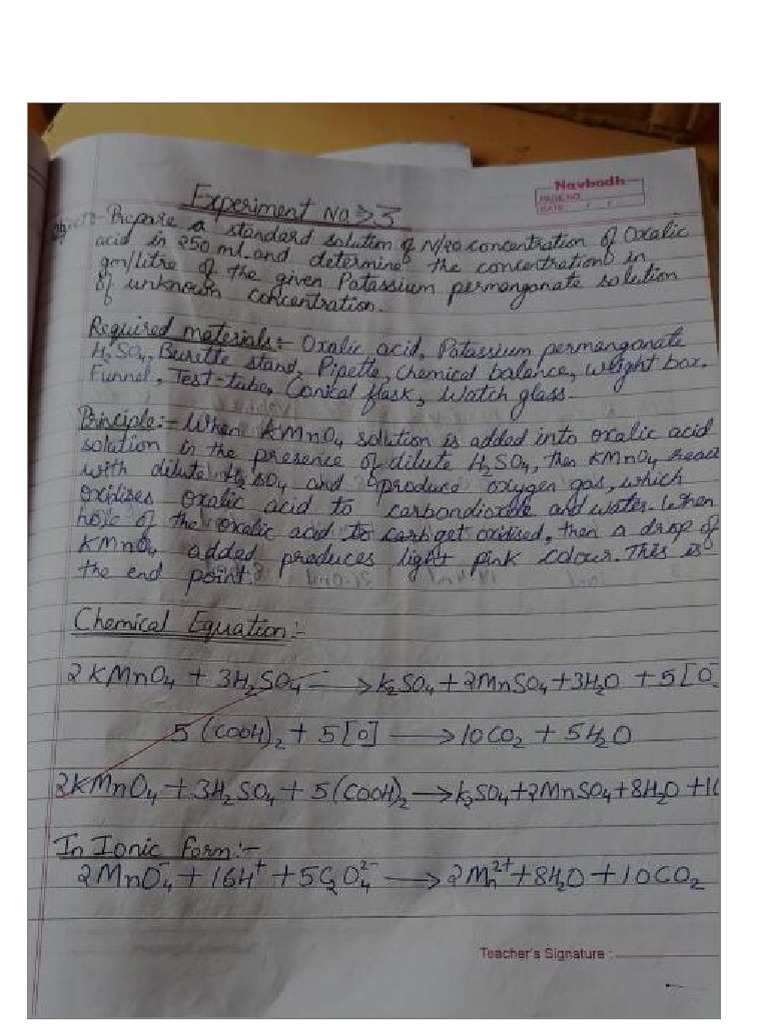 Navbodh
PAGE NO.
DATE : / /
Experiment No ⇒ 3
Object:- Prepare a standard solution of N/20 concentration of Oxalic
acid in 250 ml. and determine the concentration in
gm/litre of the given Potassium permanganate solution
of unknown concentration.
Required materials:- Oxalic acid, Potassium permanganate
H₂SO₄, Burette stand, Pipette, Chemical balance, Weight box,
Funnel, Test-tube, Conical flask, Watch glass.
Principle:- When KMnO₄ solution is added into oxalic acid
solution in the presence of dilute H₂SO₄, then KMnO₄ react
with dilute H₂SO₄ and produce oxygen gas, which
oxidises oxalic acid to carbondioxide and water. When
hole of the oxalic acid to carb get oxidised, then a drop of
KMnO₄ added produces light pink colour. This is
the end point.
Chemical Equation:-
2KMnO₄ + 3H₂SO₄ → K₂SO₄ + 2MnSO₄ + 3H₂O + 5[O
5(COOH)₂ + 5[O] → 10CO₂ + 5H₂O
2KMnO₄ + 3H₂SO₄ + 5(COOH)₂ → K₂SO₄ + 2MnSO₄ + 8H₂O + 10
In Ionic form:-
2MnO₄⁻ + 16H⁺ + 5C₂O₄²⁻ → 2Mn²⁺ + 8H₂O + 10CO₂
Teacher's Signature :